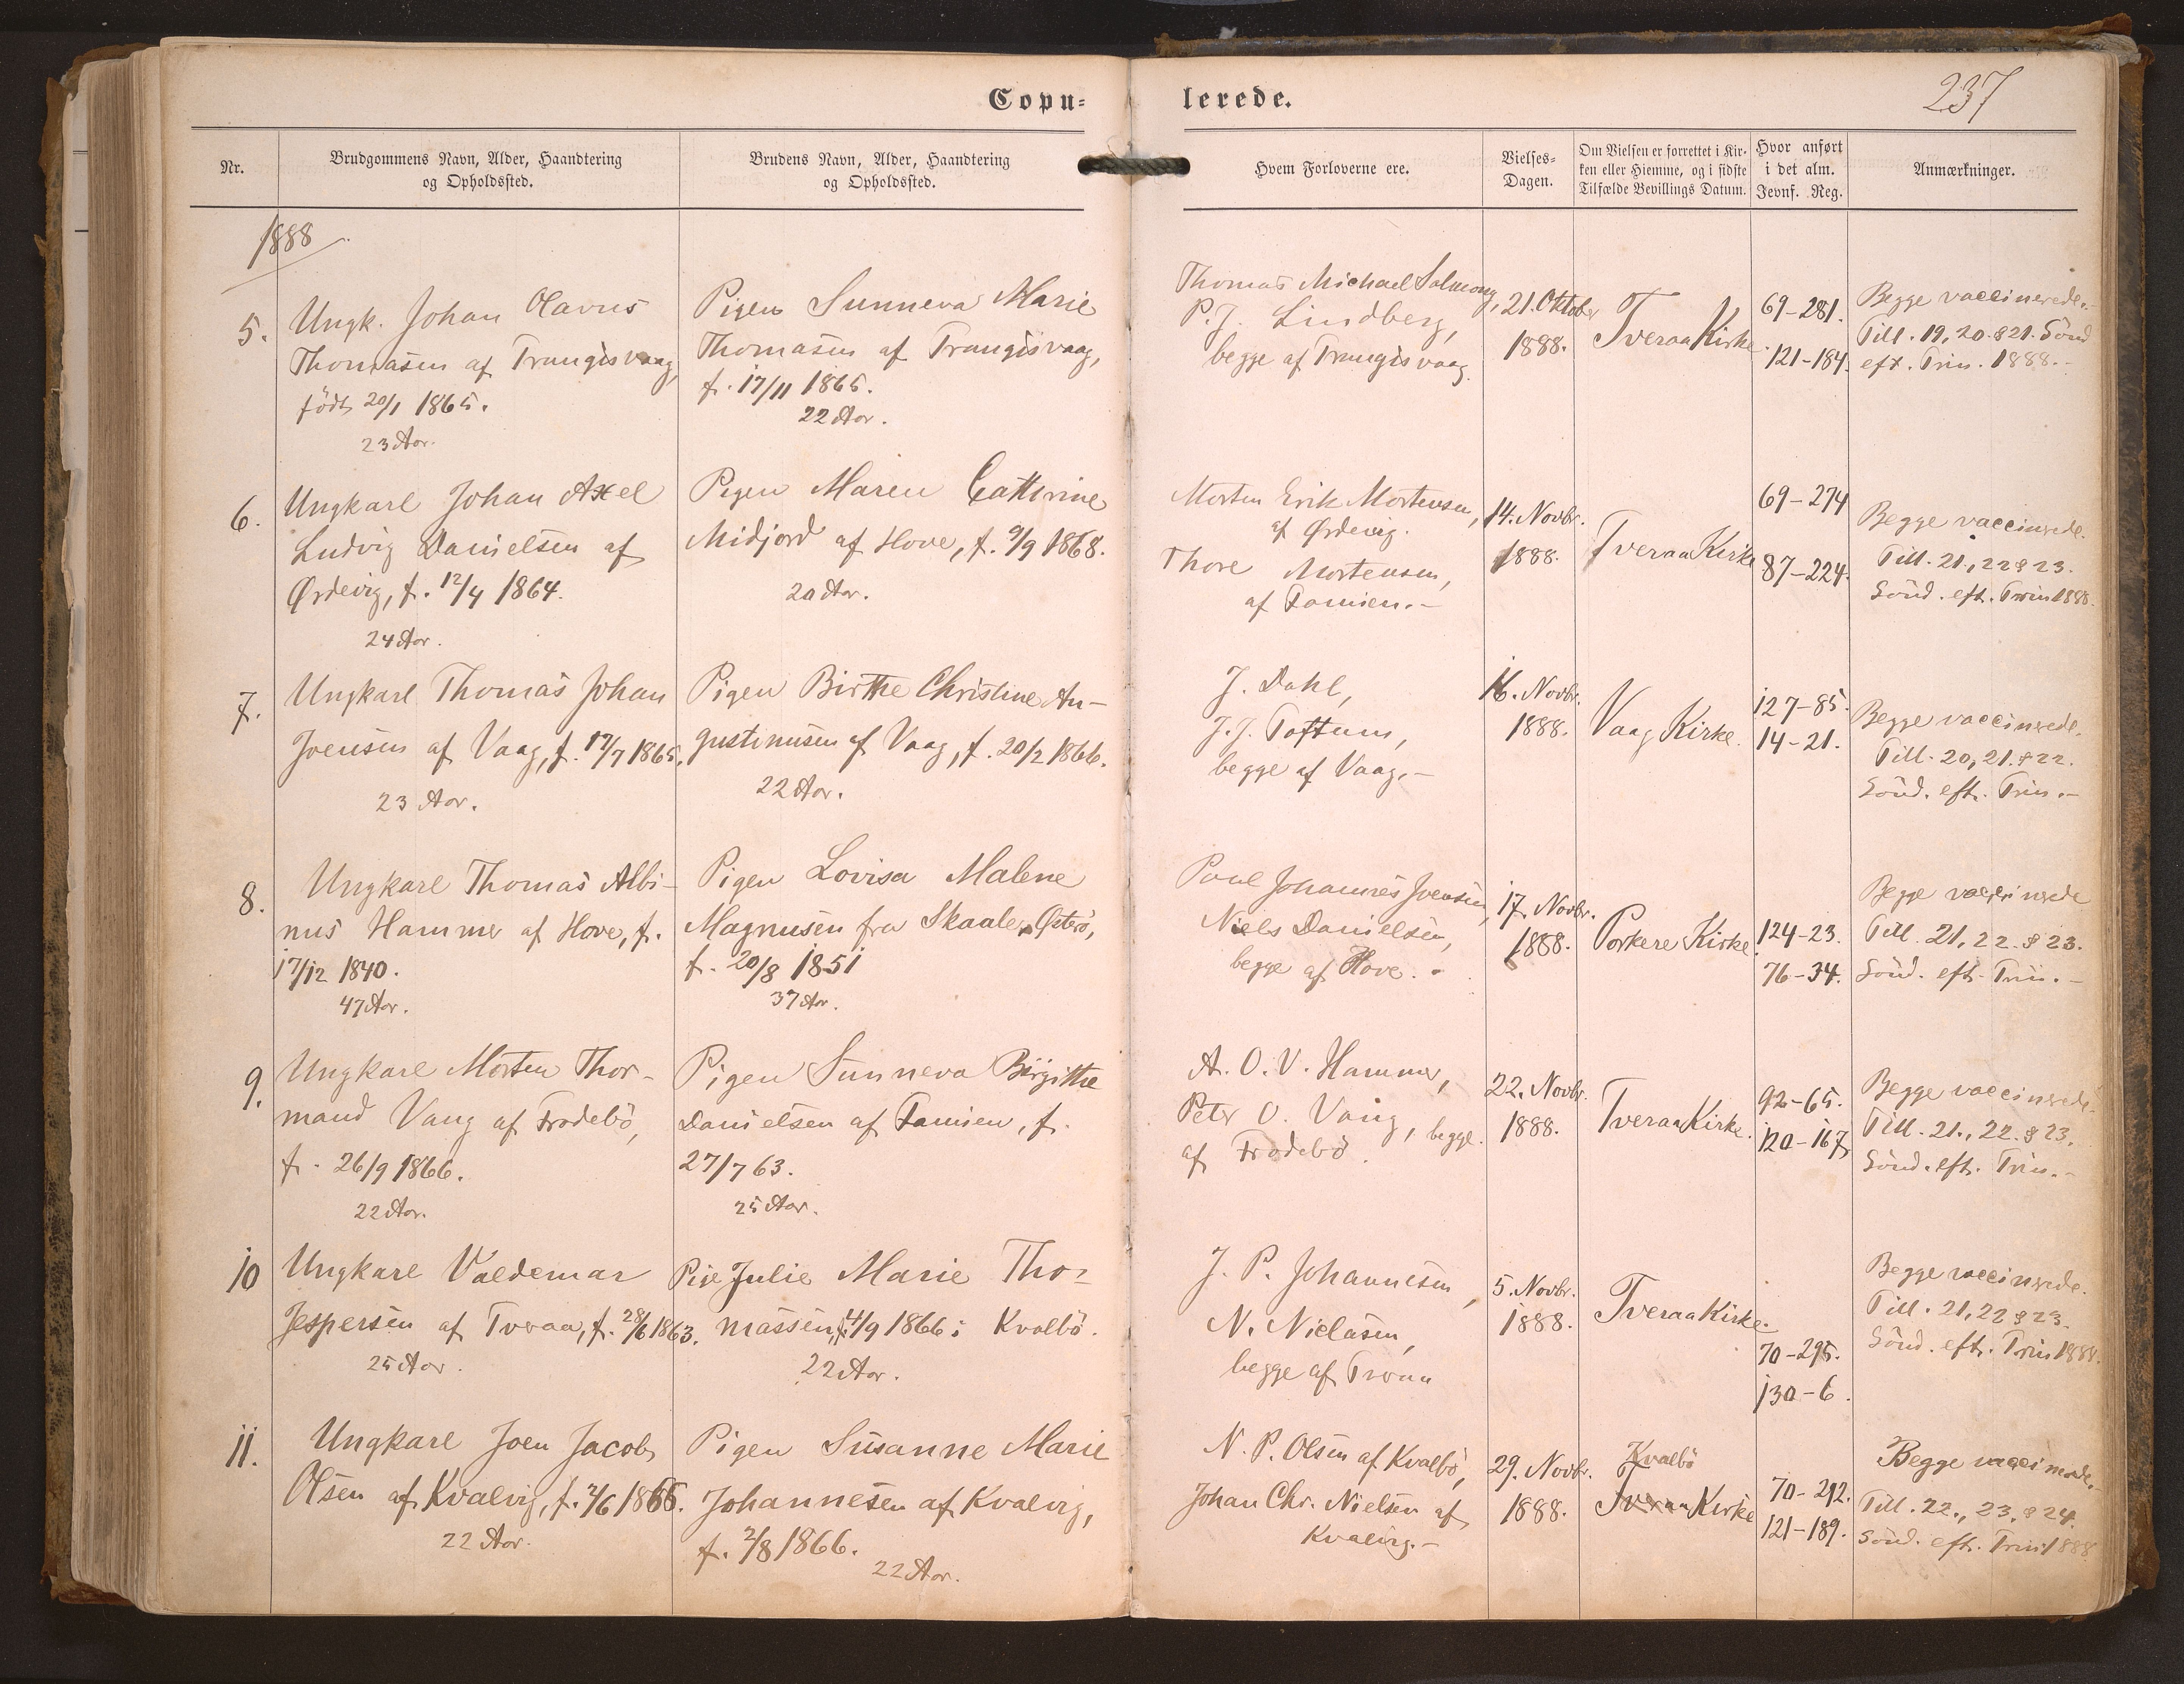 Copu-
lerede.
237
Nr.
Brudgommens Navn, Alder, Haandtering
og Opholdssted.
Brudens Navn, Alder, Haandtering
og Opholdssted.
Hvem Forloverne ere.
Vielses-
Dagen.
Om Vielsen er forrettet i Kir-
ken eller Hiemme, og i sidste
Tilfælde Bevillings Datum.
Hvor anført
i det alm.
Jevnf. Reg.
Anmærkninger.
1888
5.
Ungk. Johan Olavus
Thomasen af Trangisvaag,
født 20/1 1865.
23 Aar.
Pigen Sunneva Marie
Thomasen af Trangisvaag,
f. 17/11 1865.
22 Aar.
Thomas Michael Salmong,
P. J. Lindberg,
begge af Trangisvaag.
21. Oktober
1888.
Tveraa Kirke.
69-281.
121-184.
Begge vaccinerede.
Till. 19, 20. & 21. Sönd
eft. Trin. 1888.-
6.
Ungkarl Johan Axel
Ludvig Danielsen af
Ørdevig, f. 12/4 1864.
24 Aar.
Pigen Maren Cathrine
Midjord af Hove, f. 9/9 1868.
20 Aar.
Morten Erik Mortensen,
af Ørdevig.
Thore Mortensen,
af Famien.-
14. Novbr.
1888.
Tveraa Kirke
69-274
87-224.
Begge vaccinrede.
Till. 21., 22 & 23.
Sönd. eft. Trin 1888.
7.
Ungkarl Thomas Johan
Joensen af Vaag, f. 17/7 1865.
23 Aar.
Pigen Birthe Christine Au-
gustinusen af Vaag, f. 20/2 1866.
22 Aar.
J. Dahl,
J. J. Toftum,
begge af Vaag.-
16. Novbr.
1888.
Vaag Kirke.
127-85.
14-21.
Begge vaccinrede.
Till. 20, 21. & 22.
Sönd. eft. Trin.-
8.
Ungkarl Thomas Albi-
nus Hammer af Hove, f.
17/12 1840.
47 Aar.
Pigen Lovisa Malene
Magnusen fra Skaale, Østerö,
f. 20/8 1851
37 Aar.
Poul Johannes Joensen,
Niels Danielsen,
begge af Hove.
17. Novbr.
1888.
Porkere Kirke.
124-23.
76-34.
Begge vaccinrede
Till. 21, 22. & 23.
Sönd. eft. Trin.-
9.
Ungkarl Morten Thor-
mand Vang af Frodebö,
f. 26/9 1866.
22 Aar.
Pigen Sunneva Birgitte
Danielsen af Famien, f.
27/7 63.
25 Aar.
A. O. V. Hammer,
Peter O. Vang, begge
af Frodebö.
22. Novbr.
1888.
Tveraa Kirke.
92-65.
120-167
Begge vaccinrede.
Till. 21., 22. & 23.
Sönd. eft. Trin.-
10
Ungkarl Valdemar
Jespersen af Tveraa, f. 28/6 1863.
25 Aar.
Pige Julie Marie Tho-
massen, f. 14/9 1866 i Kvalbö.
22 Aar.
J. P. Johannesen,
N. Nielasen,
begge af Tveraa
5. Novbr.
1888.
Tveraa Kirke.
70-295.
130-6.
Begge vaccinrede.
Till. 21, 22 & 23.
Sönd. eft. Trin 1888.
11.
Ungkarl Joen Jacob
Olsen af Kvalvig, f. 2/6 1866.
22 Aar.
Pigen Susanne Marie
Johannesen af Kvalvig,
f. 2/8 1866.
22 Aar.
N. P. Olsen af Kvalbö,
Johan Chr. Nielsen af
Kvalvig.-
29. Novbr.
1888.
Kvalbö
Tveraa Kirke
70-292.
121-189.
Begge vaccinrede.
Till. 22., 23. & 24.
Sönd. eft. Trin 1888